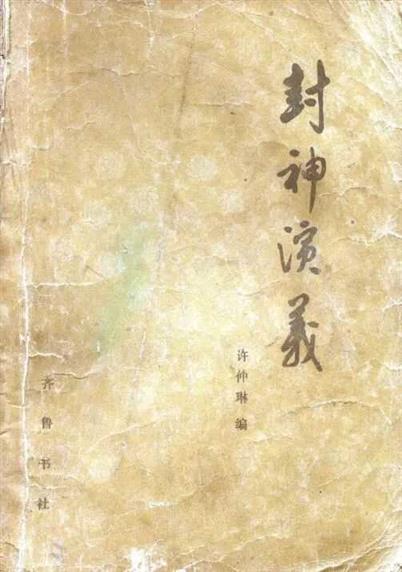 封神演義
许仲琳编
齐鲁书社